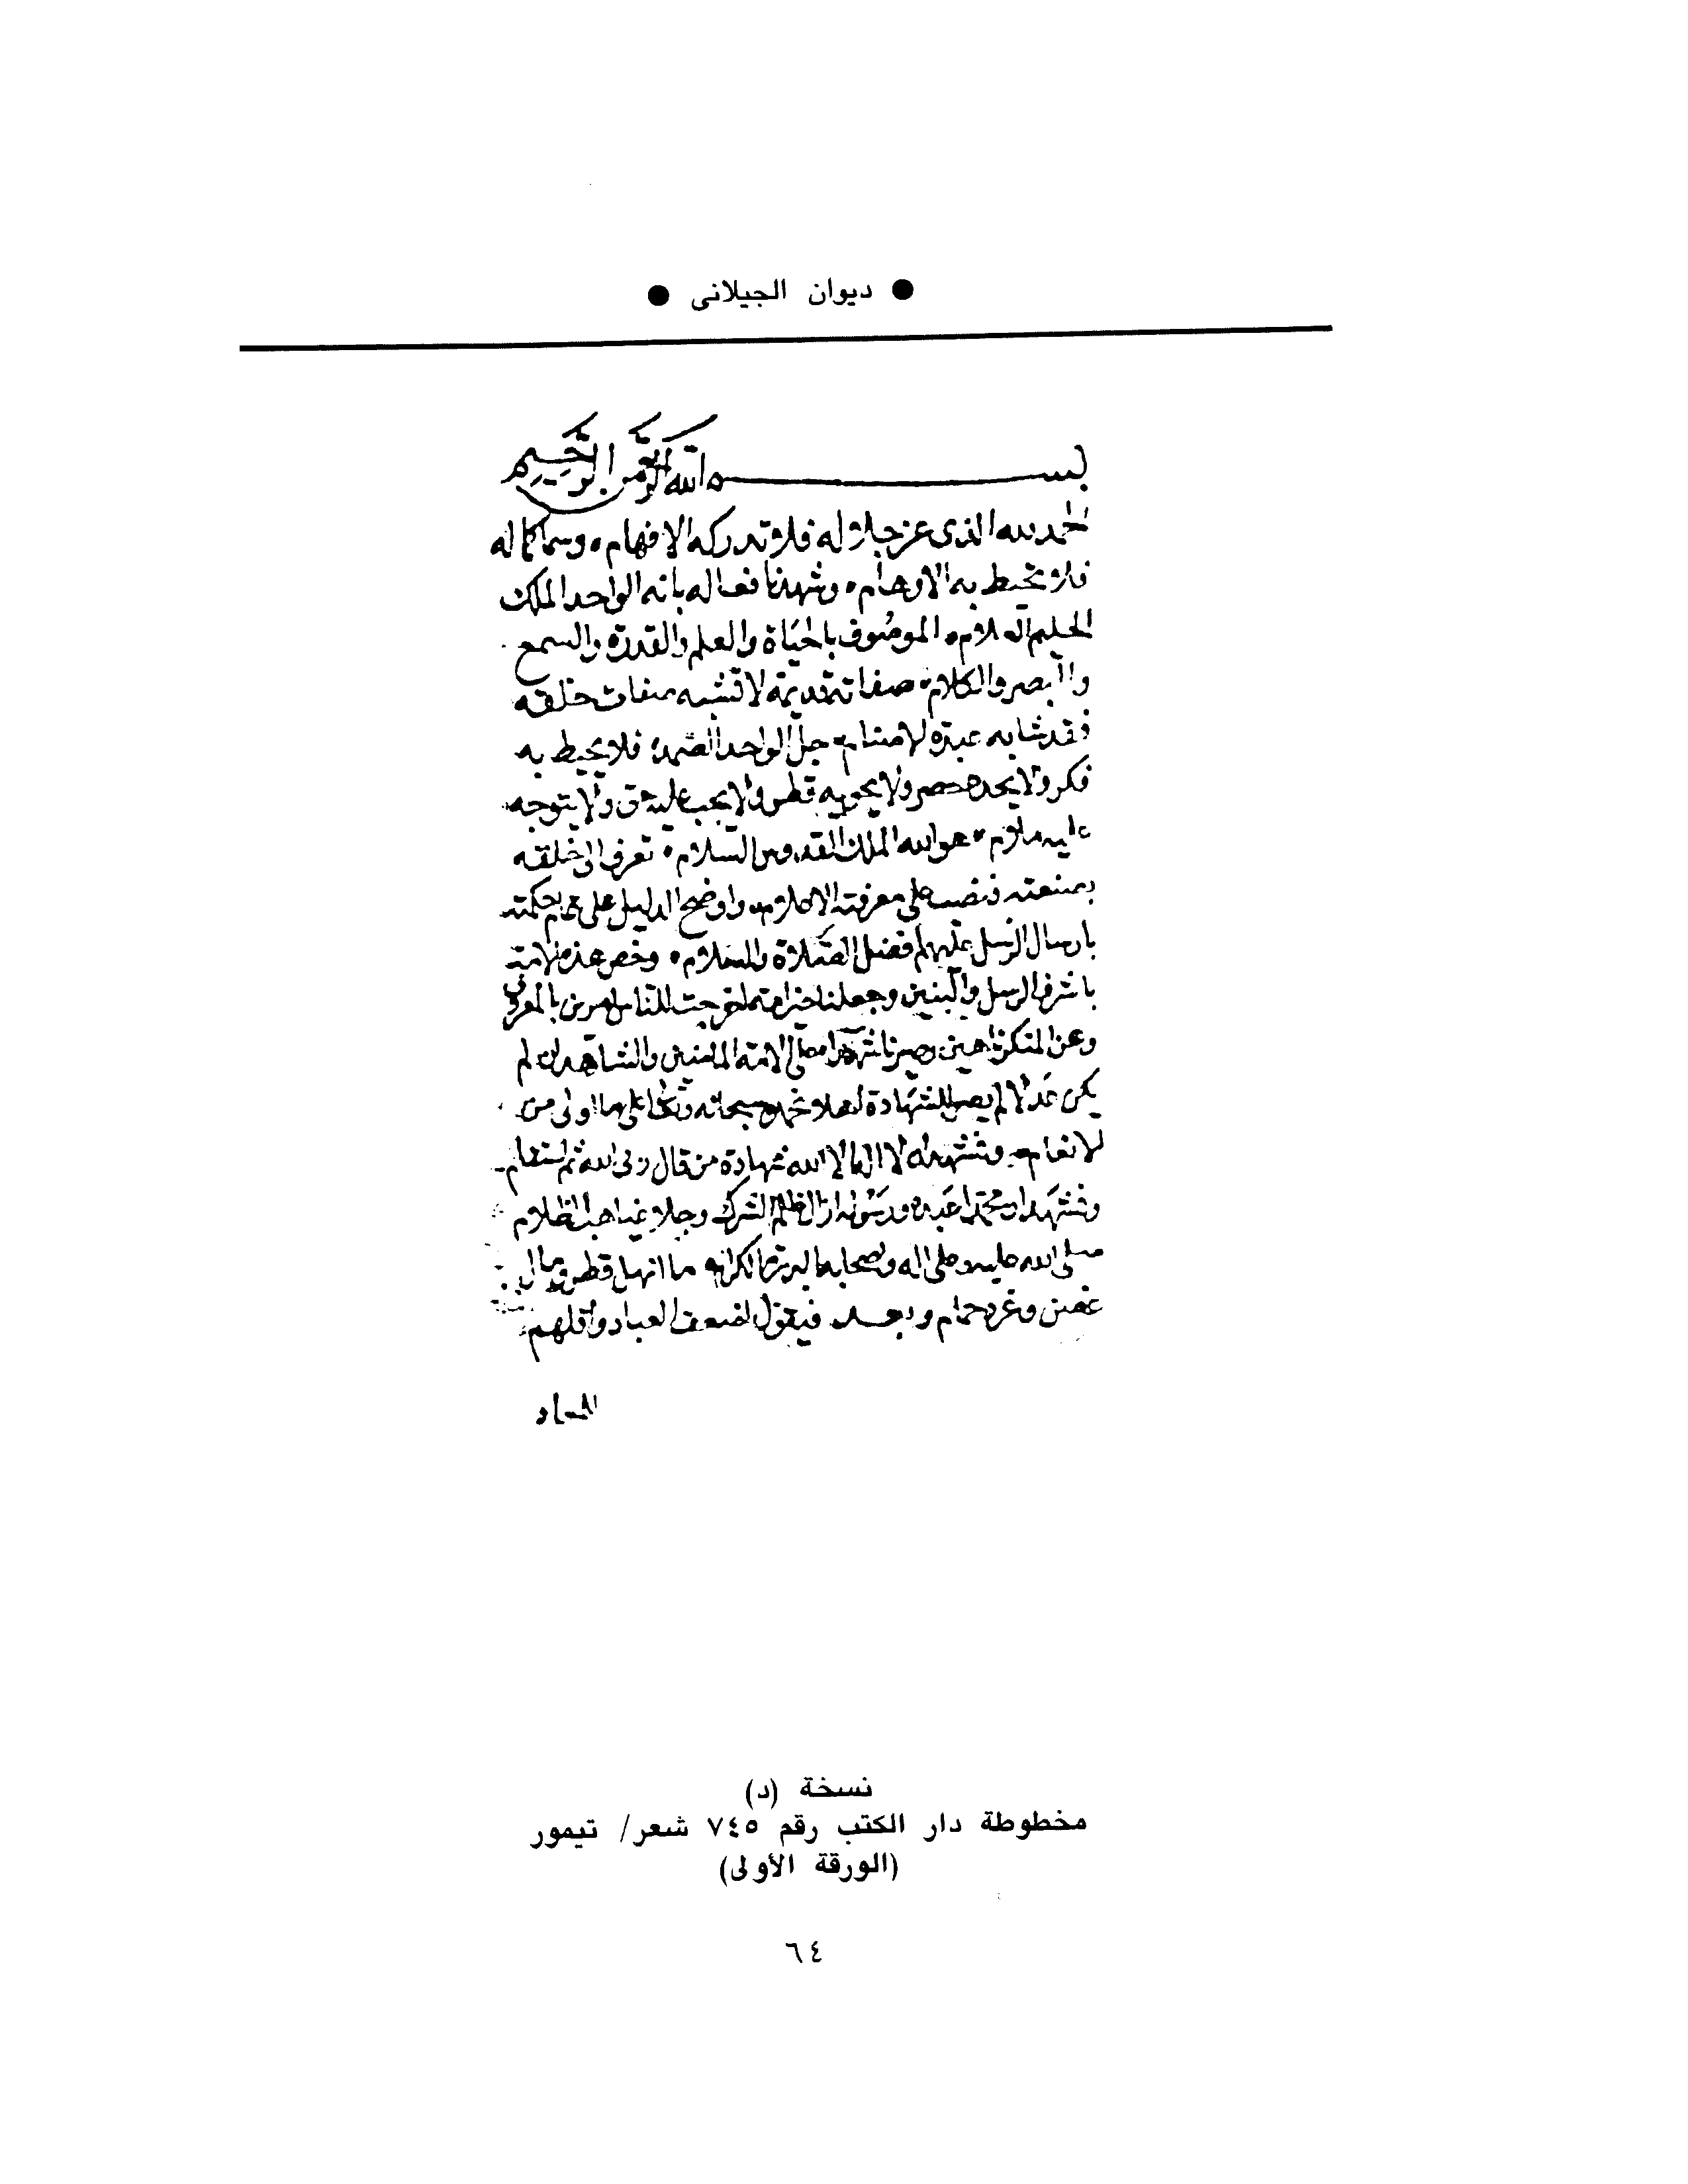 ● ديوان الجيلانى ●
بسم الله الرحمن الرحيم
الحمد لله الذى عز جلاله فلا تدركه الافهام وسما كماله
فلا تحيط به الاوهام وشهدت افعاله بانه الواحد الملك
الحليم العلام الموصُوف بالحيَاة والعلم والقدرة والسمع
والبصر والكلام صفاته قديمة لا تشبه صفات خلقه
فقد شابه عبدة الاصنام جل الواحد الصمد فلا يحيط به
فكر ولا يحده حصر ولا يحويه قطر ولا يجب عليه حق ولا يتوجه
عليه ملام هو الله الملك القدوس السلام تعرف الى خلقه
بصنعته فنصب على معرفته الاعلام واوضح الدليل على تمام حكمته
بارسال الرسل عليهم افضل الصلاة والسلام وخص هذه الامة
باشرف الرسل والنبيين وجعلنا خير امة اخرجت للناس امرين بالمعروف
وعن المنكر ناهين وصيرنا شهدا على الامة الماضين والشاهد ان لم
يكن عَدلا لم يصلح للشهَادة نحمده سبحانه على ما اولى من
الانعام ونشهد ان لا اله الا الله شهادة من قال ربى الله ثم استقام
ونشهد ان محمدا عبده ورسوله ازال ظلم الشرك وجلا غياهب الظلام
صلى الله عليه وعلى اله وصحابه البررة الكرام ما انهل قطر ومال
غصن وغرد حمام وبعد فيقول اضعف العباد واقلهم
نسخة (د)
مخطوطة دار الكتب رقم ٧٤٥ شعر/ تيمور
(الورقة الأولى)
٦٤